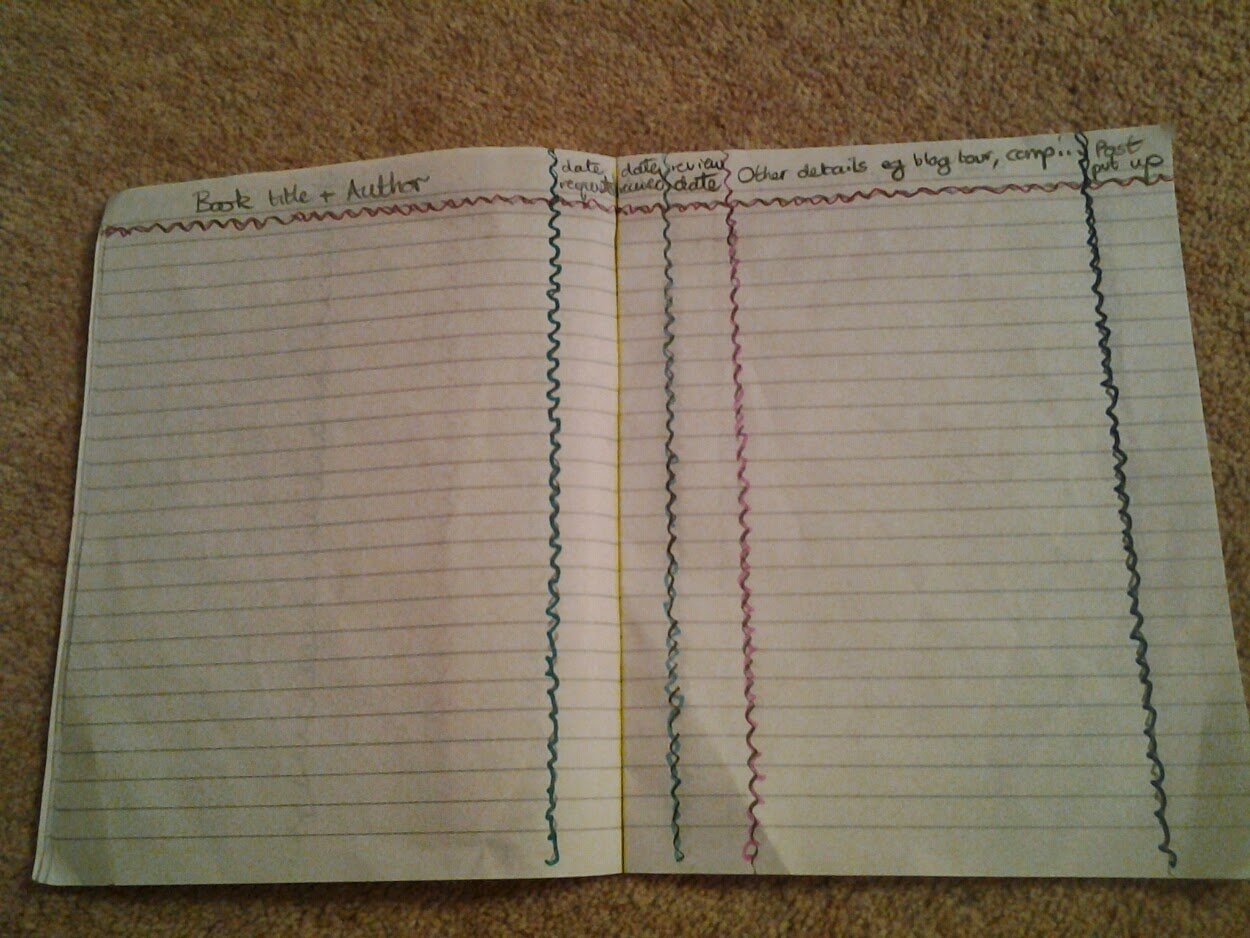 Book title + Author
date
request
date
review
date
Other details eg blog tour, comp...
Post
put up